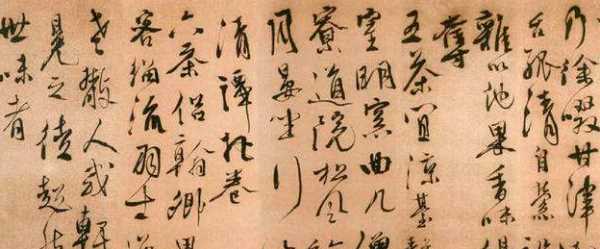 乃徐啜甘津
舌孤清自縈
雜以他果香味
奪
五茶宜涼臺靜
室明窗曲几僧
寮道院松風竹
月晏坐行
清譚把卷
六茶侶翰卿墨
客緇流羽士
老散人或軒
冕之徒超然
世味者